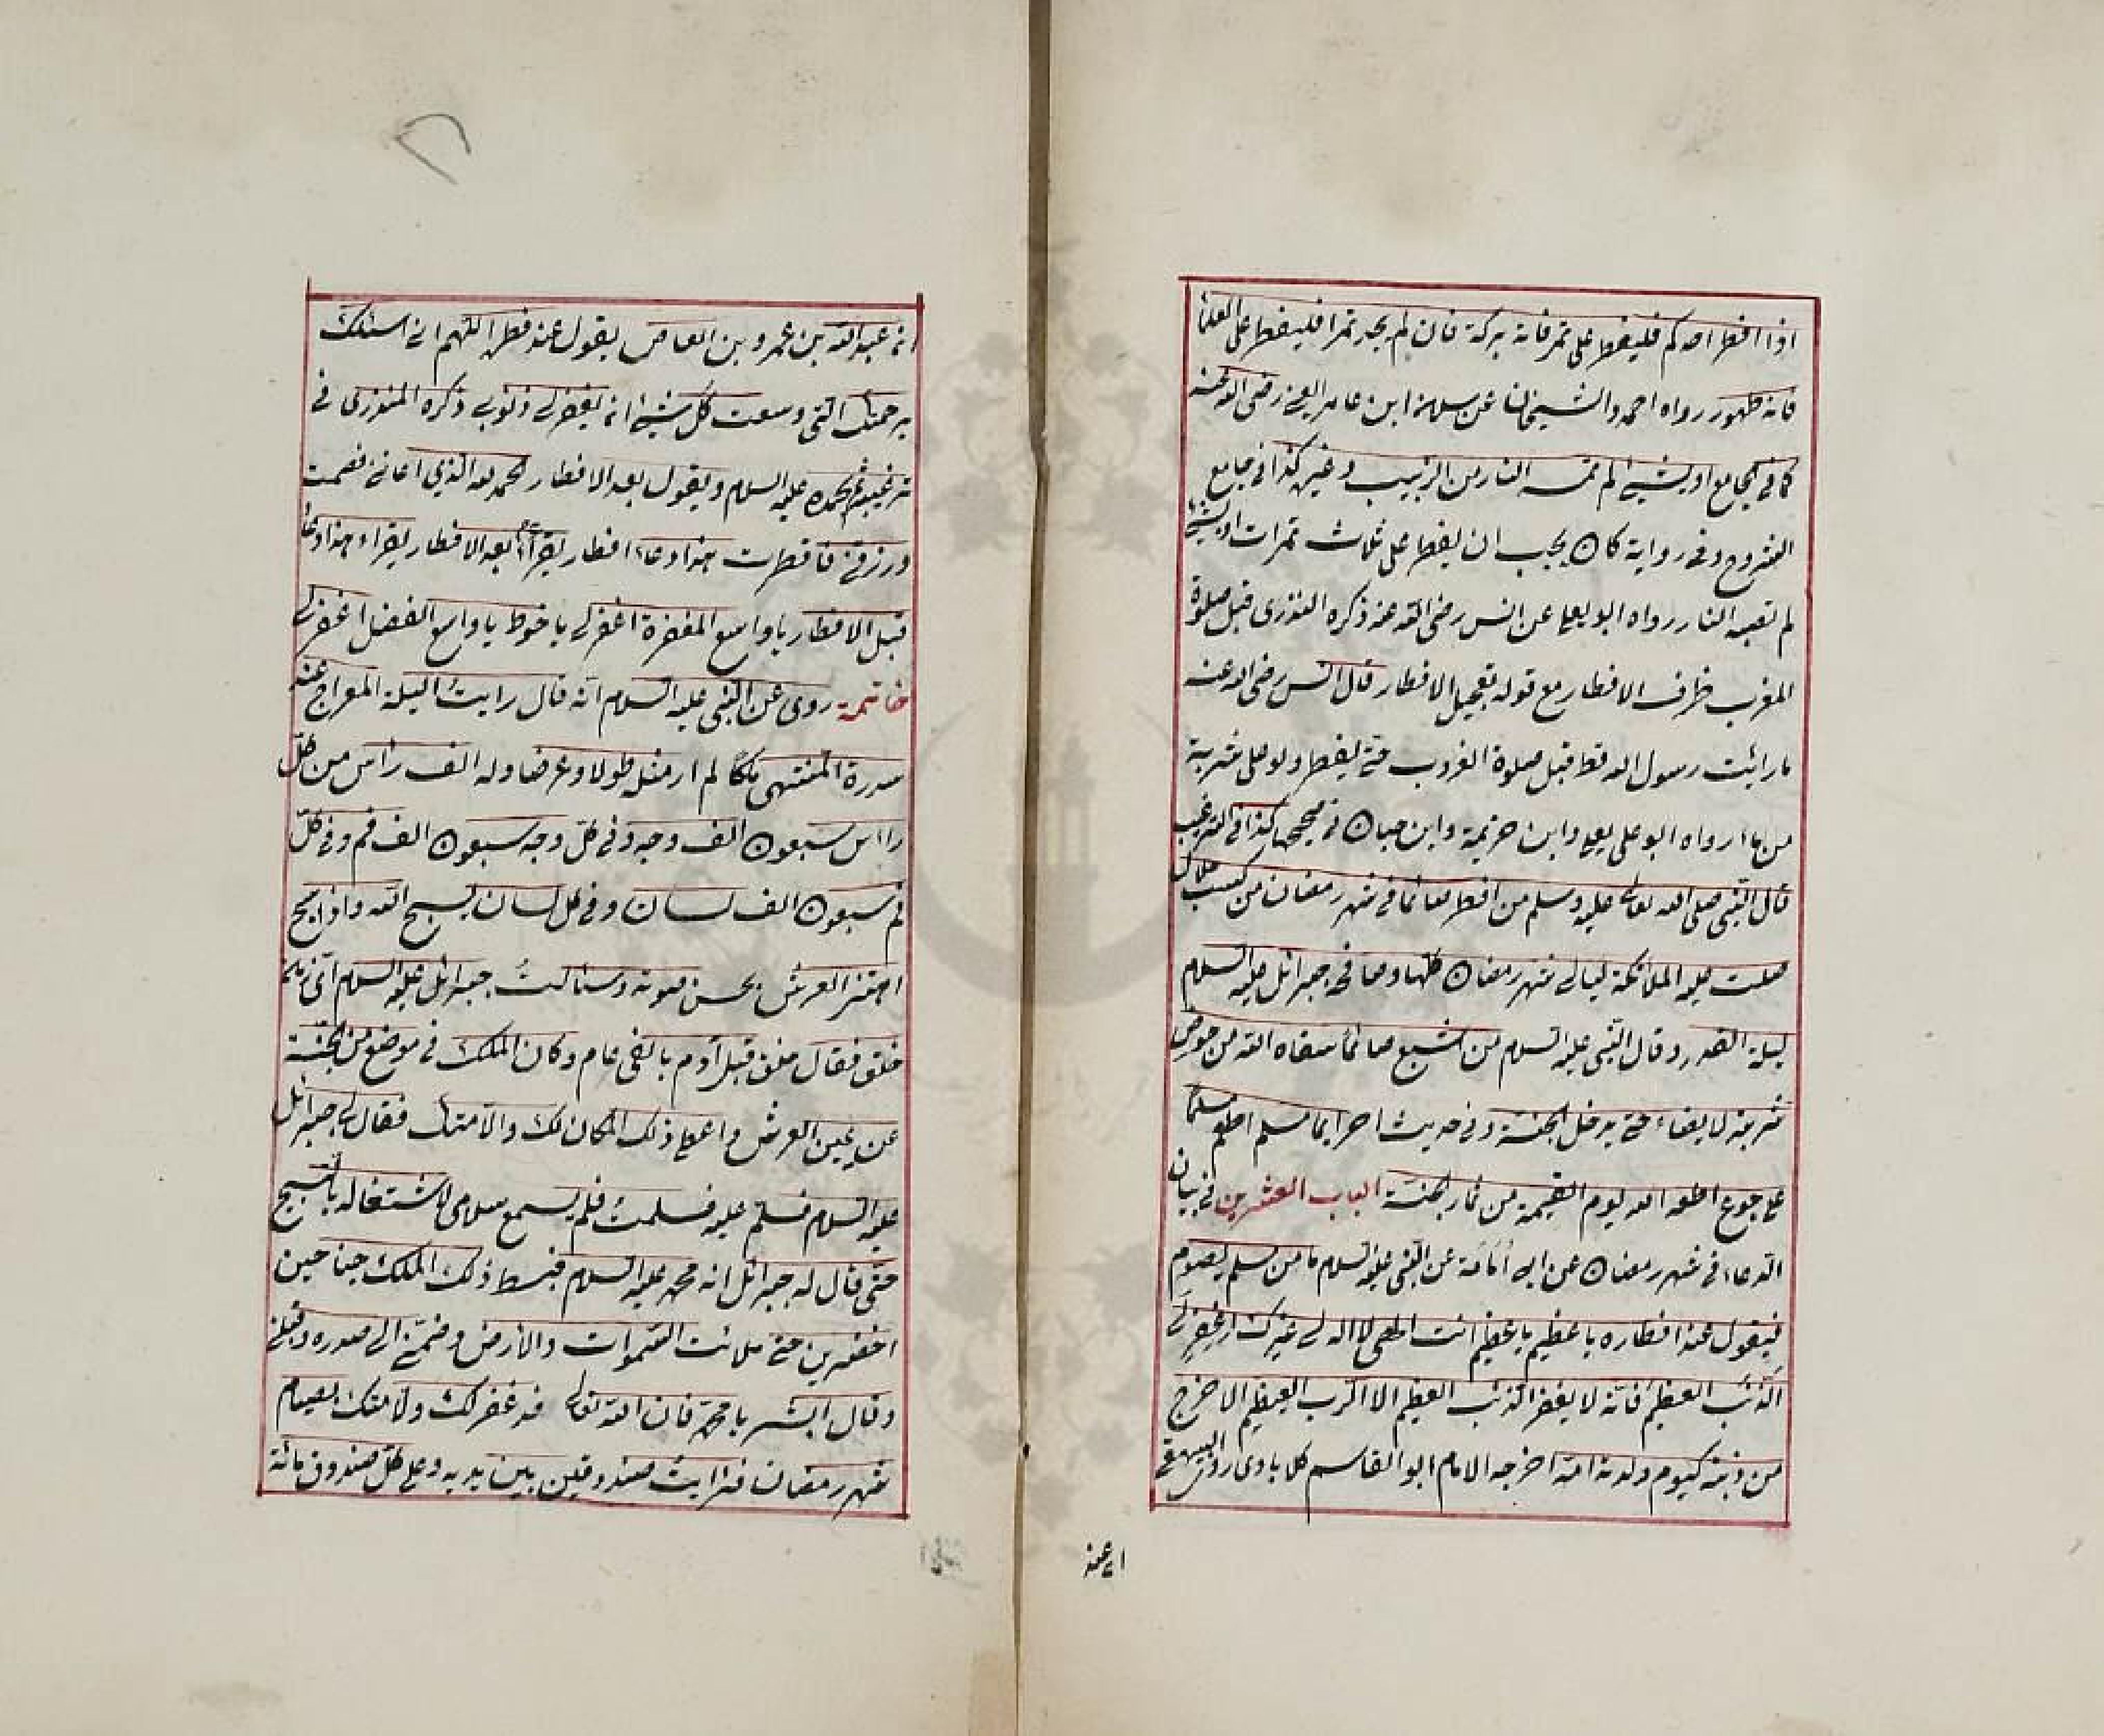 اذا افطر احدكم فليفطر على تمر فانه بركة فان لم يجد تمرا فليفطر على الماء
فانه طهور رواه احمد والشيخان عن سلمان ابن عامر رضى الله عنه
كما فى الجامع او بشئ لم تمسه النار من الزبيب وغيره كذا فى جامع
الشروح وفى رواية كان يحب ان يفطر على ثلاث تمرات او بشئ
لم تصبه النار رواه ابو يعلى عن انس رضى الله عنه ذكره المنذرى قبل صلوة
المغرب ظرف الافطار مع قوله تعجيل الافطار قال انس رضى الله عنه
ما رائيت رسول الله قط قبل صلوة الغروب حتى ليفطر ولو على شربة
من ماء رواه ابو على يعلى وابن خزيمة وابن حبان فى صحيحهما كذا فى الترغيب
قال النبى صلى الله تعالى عليه وسلم من افطر صائما فى شهر رمضان من كسب حلال
صلت عليه الملائكة ليالى شهر رمضان كلها وصافحه جبرائل عليه السلام
ليلة القدر وقال النبى عليه السلام من اشبع صائما سقاه الله من حوضى
شربة لا يظماء حتى يدخل الجنة وفى حديث اخر ايما مسلم اطعم مسلما
على جوع اطعمه الله يوم القيمة من ثمار الجنة الباب العشرين فى بيان
الدعاء فى شهر رمضان عن ابى امامة عن النبى عليه السلام ما من مسلم يصوم
فيقول عند افطاره يا عظيم يا عظيم انت الهى لا اله لى غيرك اغفر لى
الذنب العظيم فانه لا يغفر الذنب العظيم الا الرب العظيم الا خرج
من ذنبه كيوم ولدته امه اخرجه الامام ابو القاسم كلابادى روى البيهقى
عند
ان عبد الله بن عمرو بن العاص يقول عند فطره اللهم انى اسئلك
برحمتك التى وسعت كل شئ ان يغفر لى ذنوبى ذكره المنذرى فى
ترغيبه عليه السلام ويقول بعد الافطار الحمد لله الذى اعاننى فصمت
ورزقنى فافطرت هذا دعاء افطار يقراء بعد الافطار يقراء هذا دعاء
قبل الافطار يا واسع المغفرة اغفر لى يا واسع الفضل اغفر لى
خاتمة روى عن النبى عليه السلام انه قال رايت ليلة المعراج عند
سدرة المنتهى ملكا لم ار مثله طولا وعرضا وله الف راس من كل
رااس سبعون الف وجه وفى كل وجه سبعون الف فم وفى كل
فم سبعون الف لسان وفى كل لسان يسبح الله واذا سبح
اهتز العرش بحسن صوته وسئالت جبرائل عليه السلام اى زمان
خلق فقال خلق قبل آدم بالفى عام وكان الملك فى موضع من الجنة
عن يمين العرش واعطى ذلك المكان لك ولامتك فقال لى جبرائل
عليه السلام فسلم عليه فسلمت فلم يسمع سلامى لاشتغاله بالتسبيح
حتى قال له جبرائل انه محمد عليه السلام فبسط ذلك الملك جناحين
اخضرين حتى ملائت السموات والارض وضمنى الى صدره وقبلنى
وقال ابشر يا محمد فان الله تعالى قد غفر لك ولامتك بصيام
شهر رمضان فرايت صندوقين بين يديه وعلى كل صندوق مائة